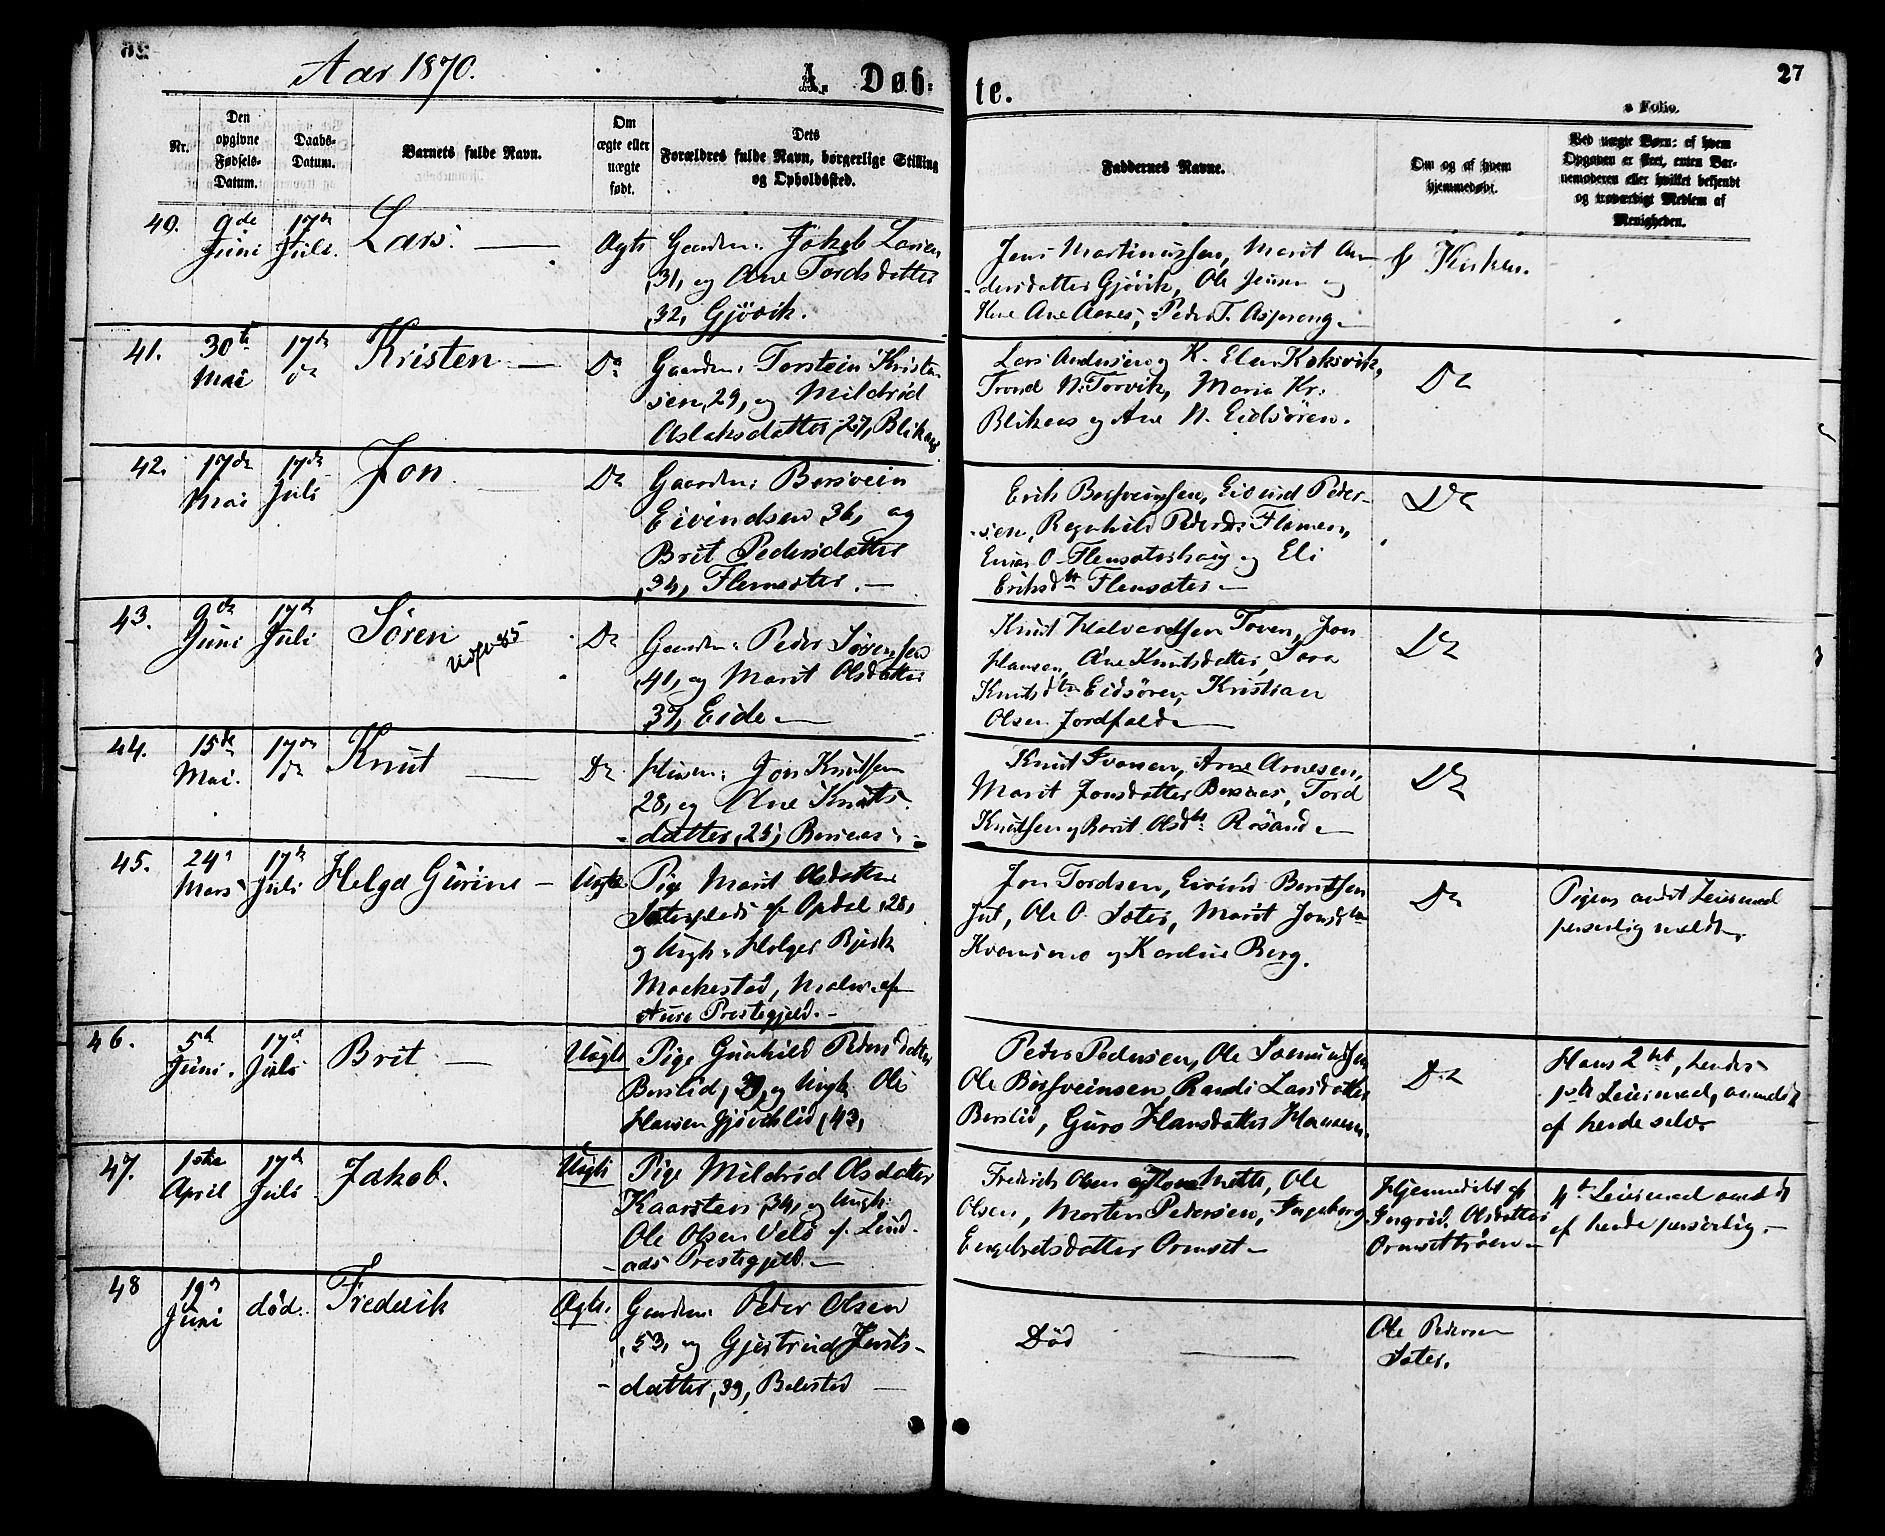 Aar 1870.
A. Døb-
te.
27
a Folio.
Nr.
Den
opgivne
Fødsels-
Datum.
Daabs-
Datum.
Barnets fulde Navn.
Om
ægte eller
uægte
født.
Dets
Forældres fulde Navn, borgerlige Stilling
og Opholdssted.
Faddernes Navne.
Om og af hvem
hjemmedøbt.
Ved uægte Børn: af hvem
Opgaven er skeet, enten Bar-
nemoderen eller hvilket bekjendt
og troværdigt Medlem af
Menigheden.
40.
9de
Juni
17de
Juli.
Lars.
Ægte
Gaardm: Jakob Larsen
31, og Ane Tordsdatter
32, Gjövik.
Jens Martinussen, Marit An-
dersdatter Gjövik, Ole Jensen og
Kone Ane Aanes, Peder T. Asprong
I Kirken.
41.
30te
Mai
17de
do
Kristen
Do
Gaardm: Torstein Kristen-
sen, 29, og Mildrid
Aslaksdatter, 27, Blikaas
Lars Andersen og K. Elen Koksvik,
Trond N. Torvik, Maria Kr.
Blikaas og Ane N. Eidsören.
Do
42.
17de
Mai
17de
Juli
Jon
Do
Gaardm: Borsvein
Eivindsen 36, og
Brit Pedersdatter
34, Flemsæter.
Erik Borsveinsen, Eivind Peder-
sen, Regnhild Pedersdr Flemsæt,
O. Flemsæterhaug og Eli
Eriksdtr Flemsæter
Do
43.
9de
Juni
17de
Juli
Sören
Do
Gaardm: Peder Sörensen
41, og Marit Olsdatter
37, Eide
Knut Halvardsen Toven, Jon
Hansen, Ane Knutsdatter, Sara
Knutsdtr Eidsören, Kristian
Olsen Jordfald
Do
44.
15de
Mai.
17de
do
Knut
Do
Husm: Jon Knutsen
28, og Ane Knuts-
datter, 25, Bersaas
Knut Ivarsen, Arne Arnesen,
Marit Jonsdatter Bersaas, Tord
Knutsen og Berit Olsdtr Rösand
Do
45.
24de
Mars
17de
Juli
Helga Gurine
Uægte
Pige Marit Olsdatter
Sæterplads af Opdal, 28,
og Ungk: Holger Bjerk
Mackestad, Maler af
Aure Prestegjeld.
Jon Tordsen, Eivind Berntsen
Jul, Ole O. Sæter, Marit Jonsdtr
og Karoline Berg.
Do
Pigens andet Leiermaal
personlig meldt.
46.
5te
Juni.
17de
Juli
Brit
Uægte
Pige Gunhild Pedersdatter
Berslid, og Ungk Ole
Hansen Gjövicklid, 43,
Peder Pedersen, Ole Sæmundsen
Ole Borsveinsen, Randi Larsdatter
Berslid, Guro Hansdatter
Do
Hans 2det, hendes
1ste Leiermaal, anmeldt
af hende selv.
47.
1ste
April
17de
Juli
Jakob.
Uægte
Pige Mildrid Olsdatter
Kaarsten, 34, og Ungk:
Ole Olsen Velö af Lind-
aas Prestegjeld.
Frederik Olsen og Kone Mette, Ole
Olsen, Morten Pedersen, Ingeborg
Engebretsdatter Ormset
Hjemmedøbt af
Ingrid Olsdatter
Ormsettröen
1ste Leiermaal anmeldt
af hende personlig.
48
19de
Juni
död.
Frederik
Ægte.
Gaardm: Peder Olsen
53, og Gjertrud Knuts-
datter, 39, Bolestad
Död
Ole Pedersen
Sæter.